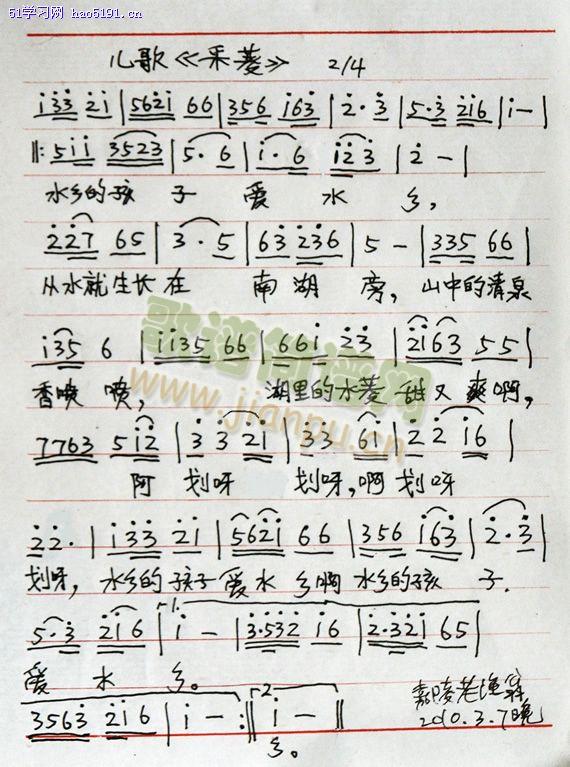 51学习网 hao5191.cn
儿歌《采菱》 2/4
i33 2i | 562i 66 | 356 i63 | 2·3 | 5·3 2i6 | i- |
‖: 5ii 3523 | 5·6 | i·6 | i23 | 2- |
水乡的孩 子 爱 水 乡,
227 65 | 3·5 | 63 236 | 5- | 335 66 |
从水就生长在 南湖 旁, 山中的清泉
i35 6 | ii35 66 | 66i 23 | 2i63 55 |
香喷喷, 湖里的水菱甜又爽啊,
7763 5i2 | 33 2i | 33 6i | 22 i6 |
阿 划呀 划呀,啊划呀
22· | i33 2i | 562i 66 | 356 i63 | 2·3 |
划呀, 水乡的孩子爱水乡啊 水乡的孩 子.
5·3 2i6 | 1. i- | 3·532 i6 | 2·32i 65 |
爱 水 乡。
3563 2i6 | i- :‖ 2 i- ‖
乡。
嘉陵老渔翁
2010.3.7晚
歌谱简谱网
www.jianpu.cn